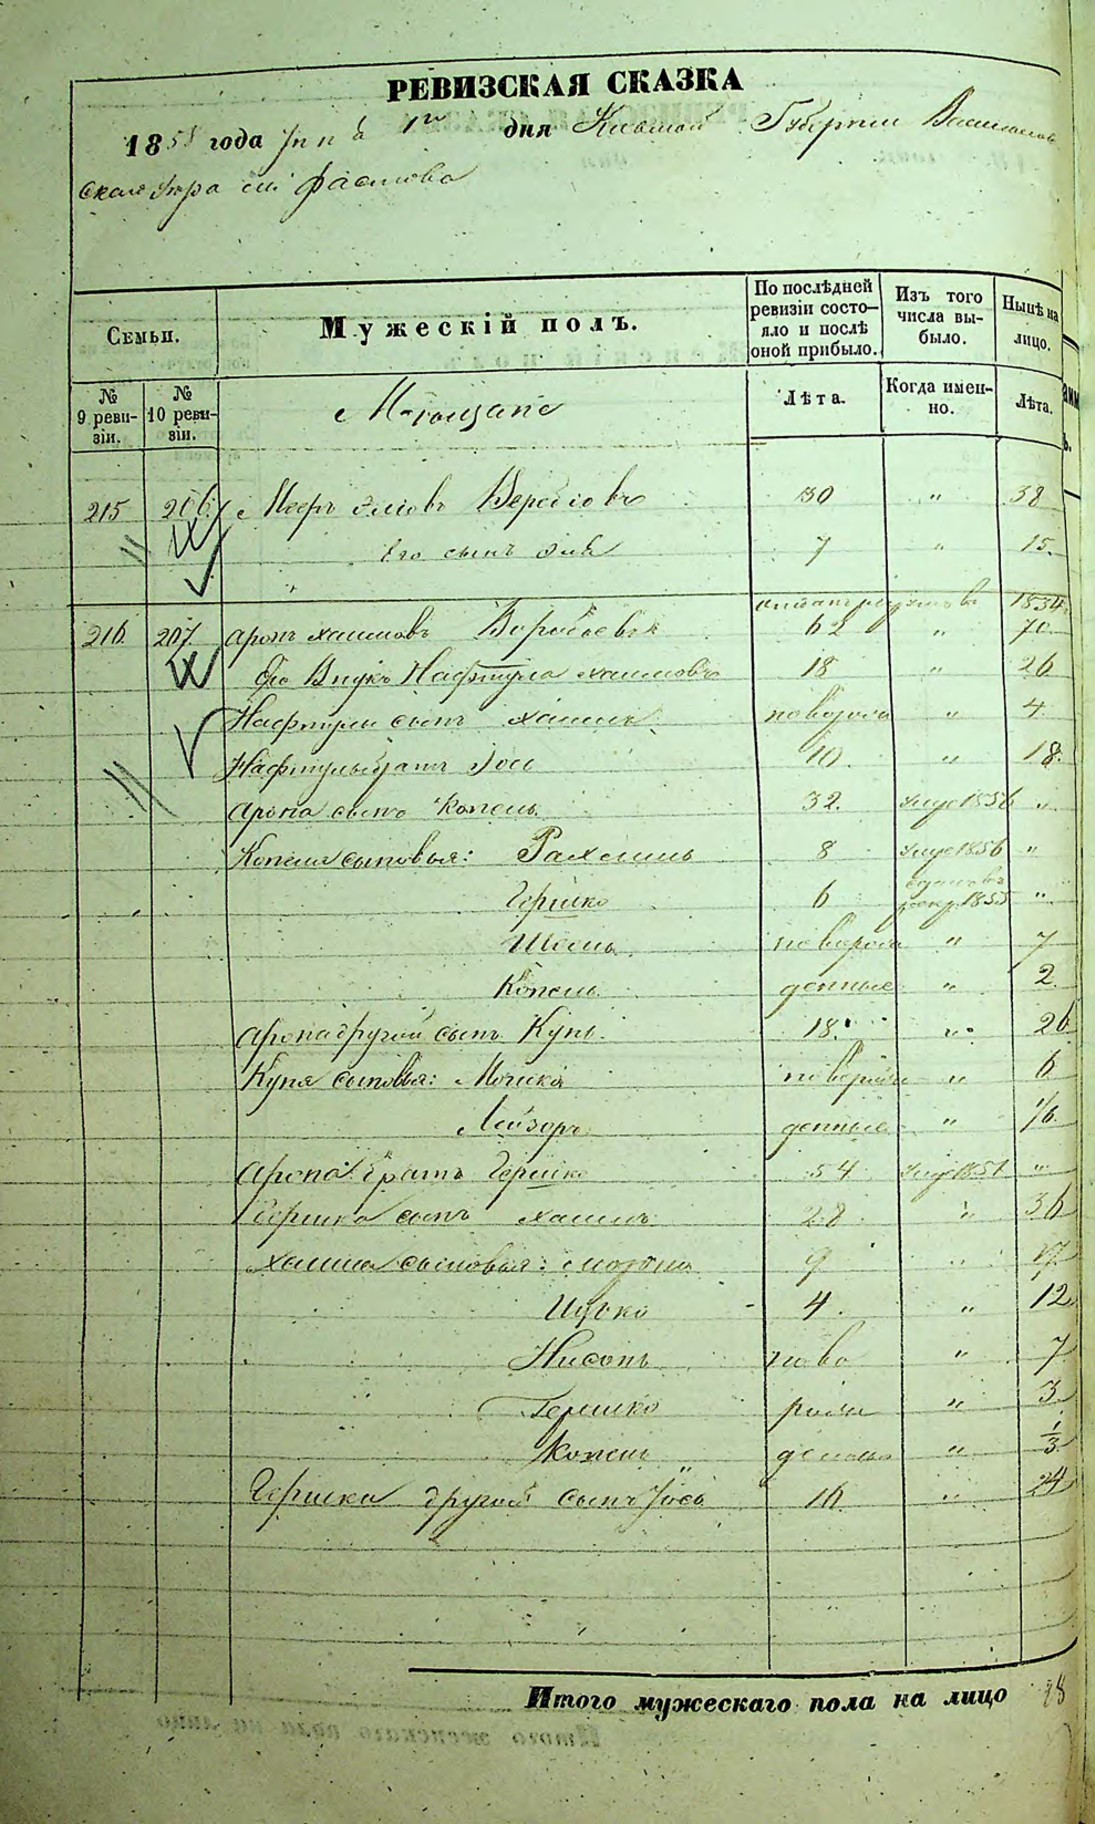 РЕВИЗСКАЯ СКАЗКА
1858 года дня Киевской Губернии Васильков
м: Фастова
Семьи. Мужескій полъ. По послѣдней ревизіи состояло и послѣ оной прибыло. Изъ того числа выбыло. Нынѣ на лицо.
№ 9 ревизіи. № 10 ревизіи. Мѣщане Лѣта. Когда именно. Лѣта.
215 206 Мееръ 30 " 38
Его сынъ Элья 7 " 15.
1834
216 207 Аронъ Хаимовъ 62 " 70
Его Внукъ Нафтула Хаимовъ 18 " 26
Нафтулы сынъ Хаимъ " 4
Нафтулы братъ Іось 10. " 18.
Арона сынъ Копель 32. умре 1856 "
Копеля сыновья: Рахмиль 8 умре 1856 "
Гершко 6 1855 "
новорож " 7
Копель денные " 2.
Арона другой сынъ Купь. 18. " 26
Купя сыновья: Мошко новорож " 6
Лейзоръ денные " 1/6.
Арона братъ Гершко 54 "
Гершка сынъ Хаимъ 28 " 36
Хаима сыновья: 9 " 17
Ицько 4. " 12
Нисонъ ново " 7
Гершко рож " 3
Копель " 1/3
Гершка другой сынъ Іось 16 " 24
Итого мужескаго пола на лицо 18